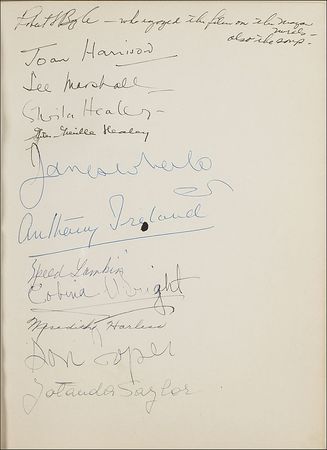 Robert Boyle — who enjoyed the film on the Mayan
also the soup.
Joan Harrison
Lee Marshall
Sheila Healey
Neville Healey
James Whale
Anthony Ireland
Speed Lambkin
Cobina Wright
Meredith Harless
Don Loper
Yolanda Saylor